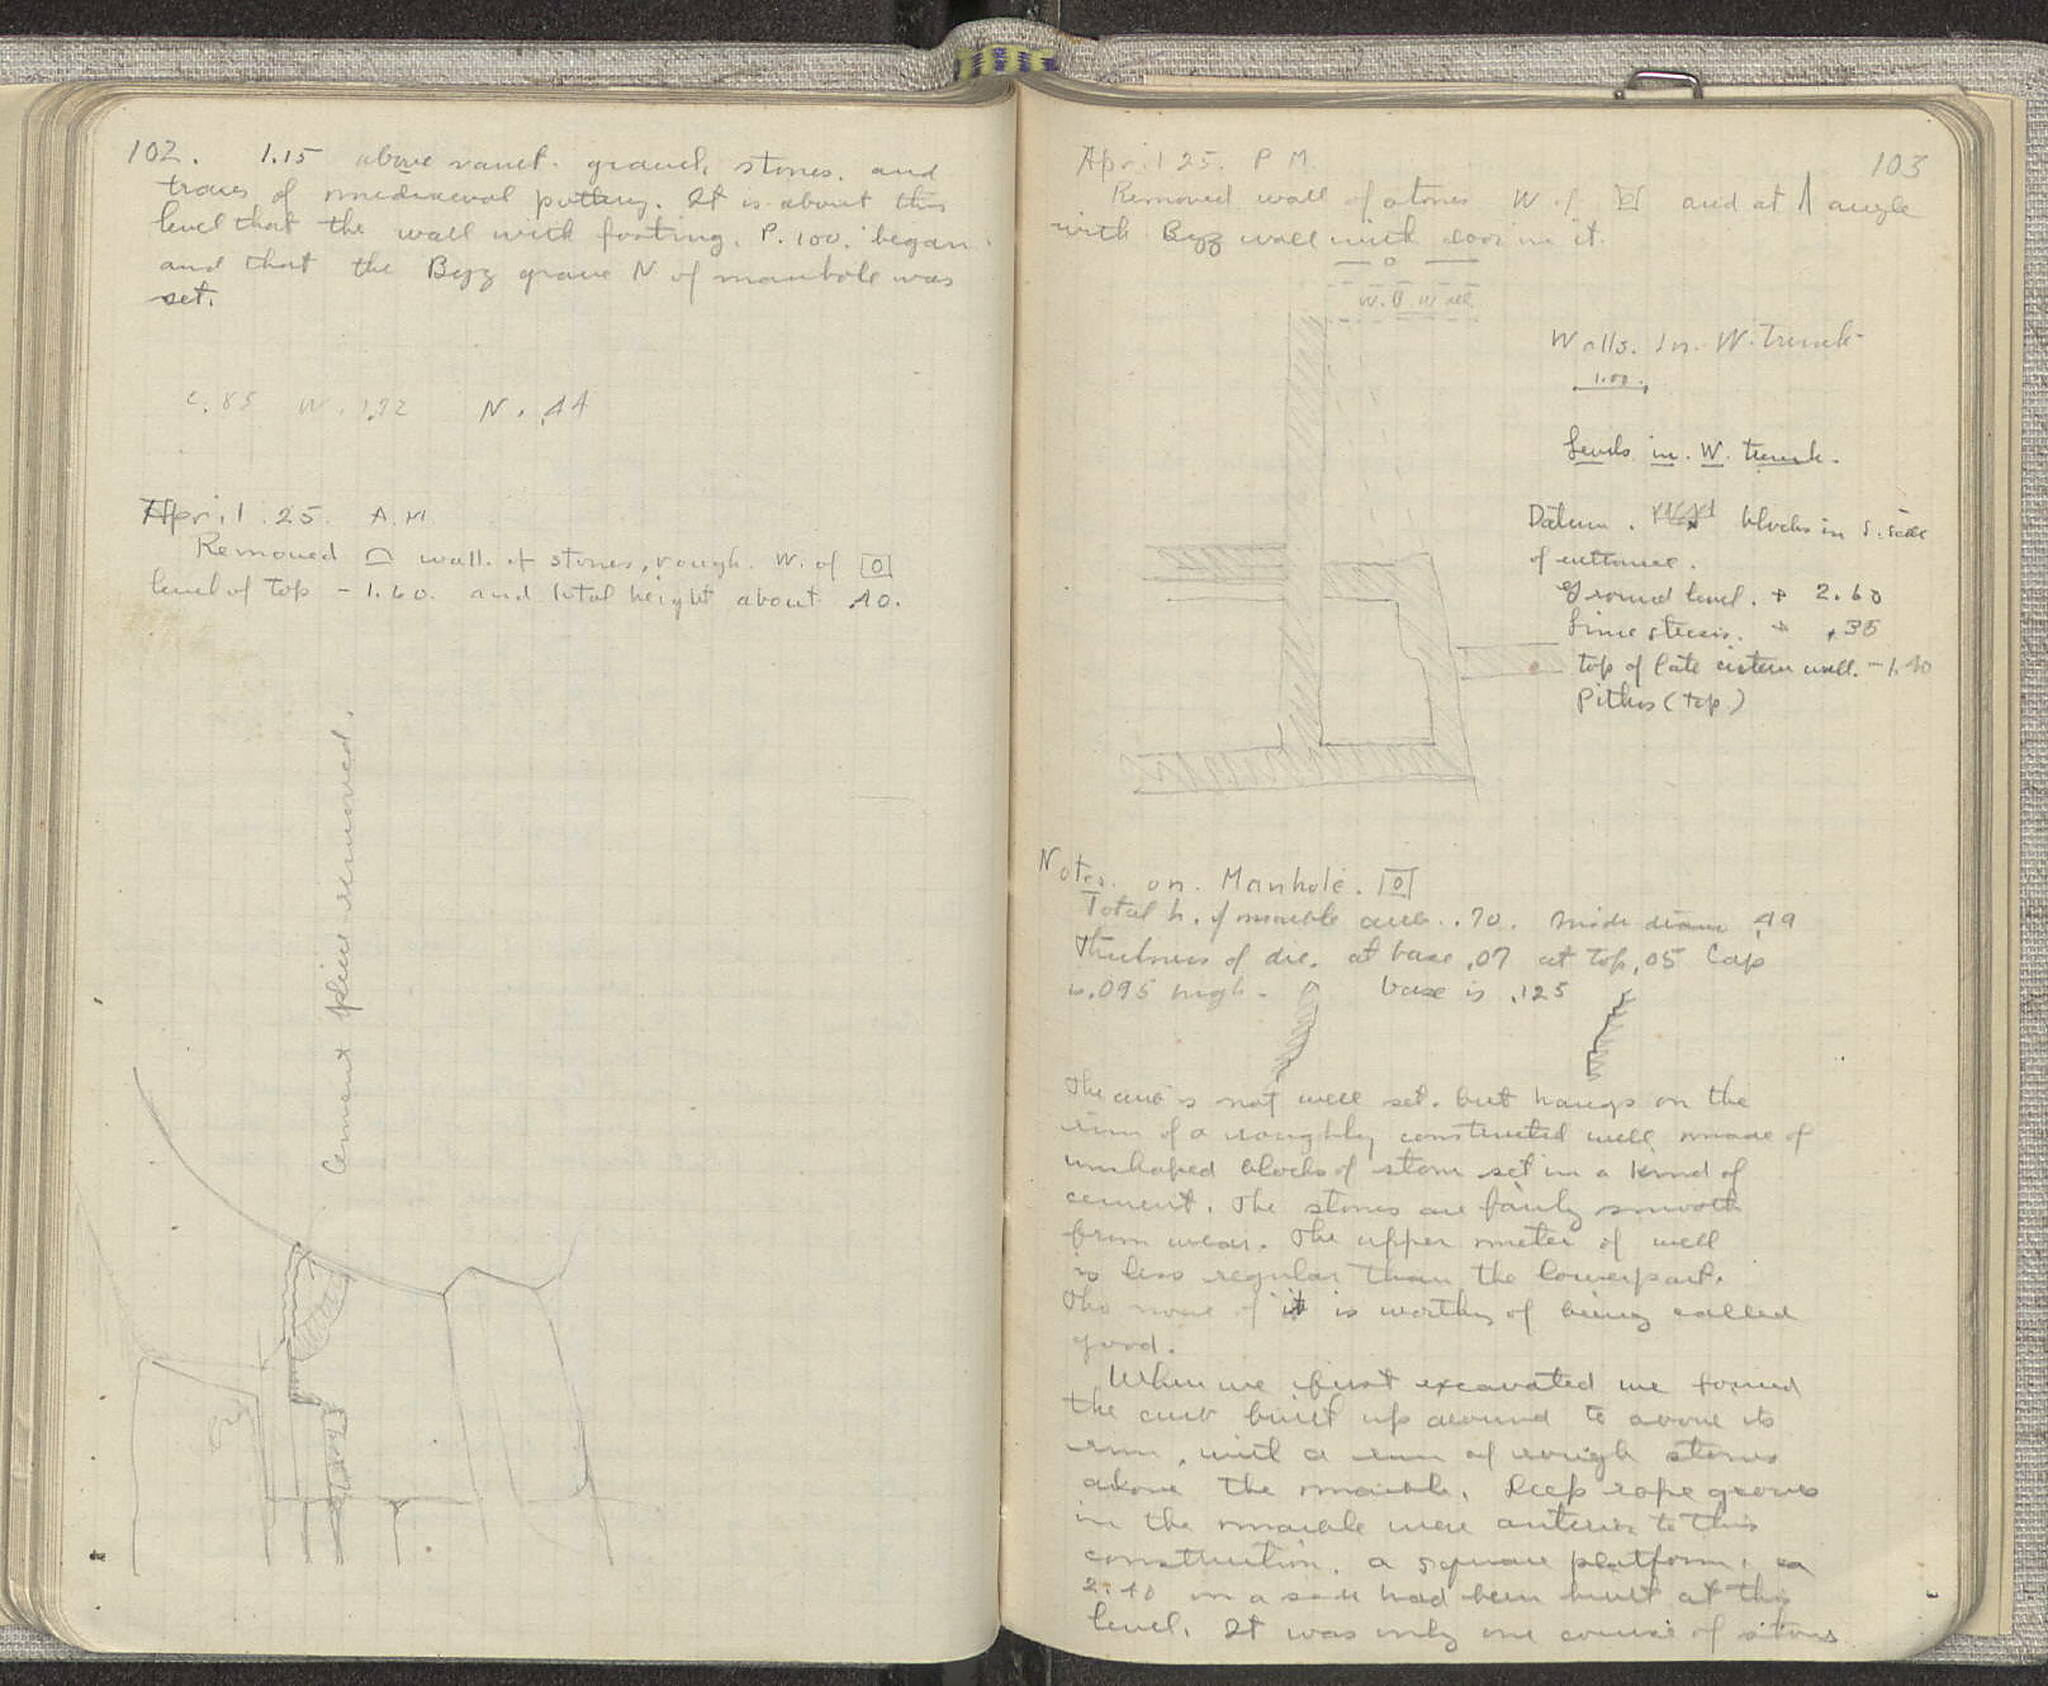 102. 1.15 above vault. gravel, stones, and
traces of mediaeval pottery. It is about this
level that the wall with footing, P. 100. began
and that the Byz grave N of manhole was
set.
W. 1.92 N. .44
April 25. A.M
Removed wall of stones, rough. W. of
level of top - 1.60. and total height about .40.
Cement removed.
103
April 25. P M.
Removed wall of stones W of and at angle
with Byz wall with door in it.
Wall
Walls. in. W. Trench
1.00.
Levels in. W. trench.
Datum. blocks in S. side
of entrance.
Ground level. + 2.60
+ .35
top of late cistern wall. - 1.40
Pithos (top)
Notes. on. Manhole.
Total h. of marble curb. .70. inside diam .49
Thickness of die. at base .07 at top .05 Cap
is .095 high. base is .125
The curb is not well set. but hangs on the
rim of a roughly constructed well made of
unshaped blocks of stone set in a kind of
cement. The stones are fairly smooth
from wear. The upper meter of well
is less regular than the lower part.
Tho none of it is worthy of being called
good.
When we first excavated we found
the curb built up around to above its
rim, with a rim of rough stones
above the marble. Deep rope grooves
in the marble were anterior to this
construction. a square platform,
2.40 on a side had been built at this
level. It was only one course of stones